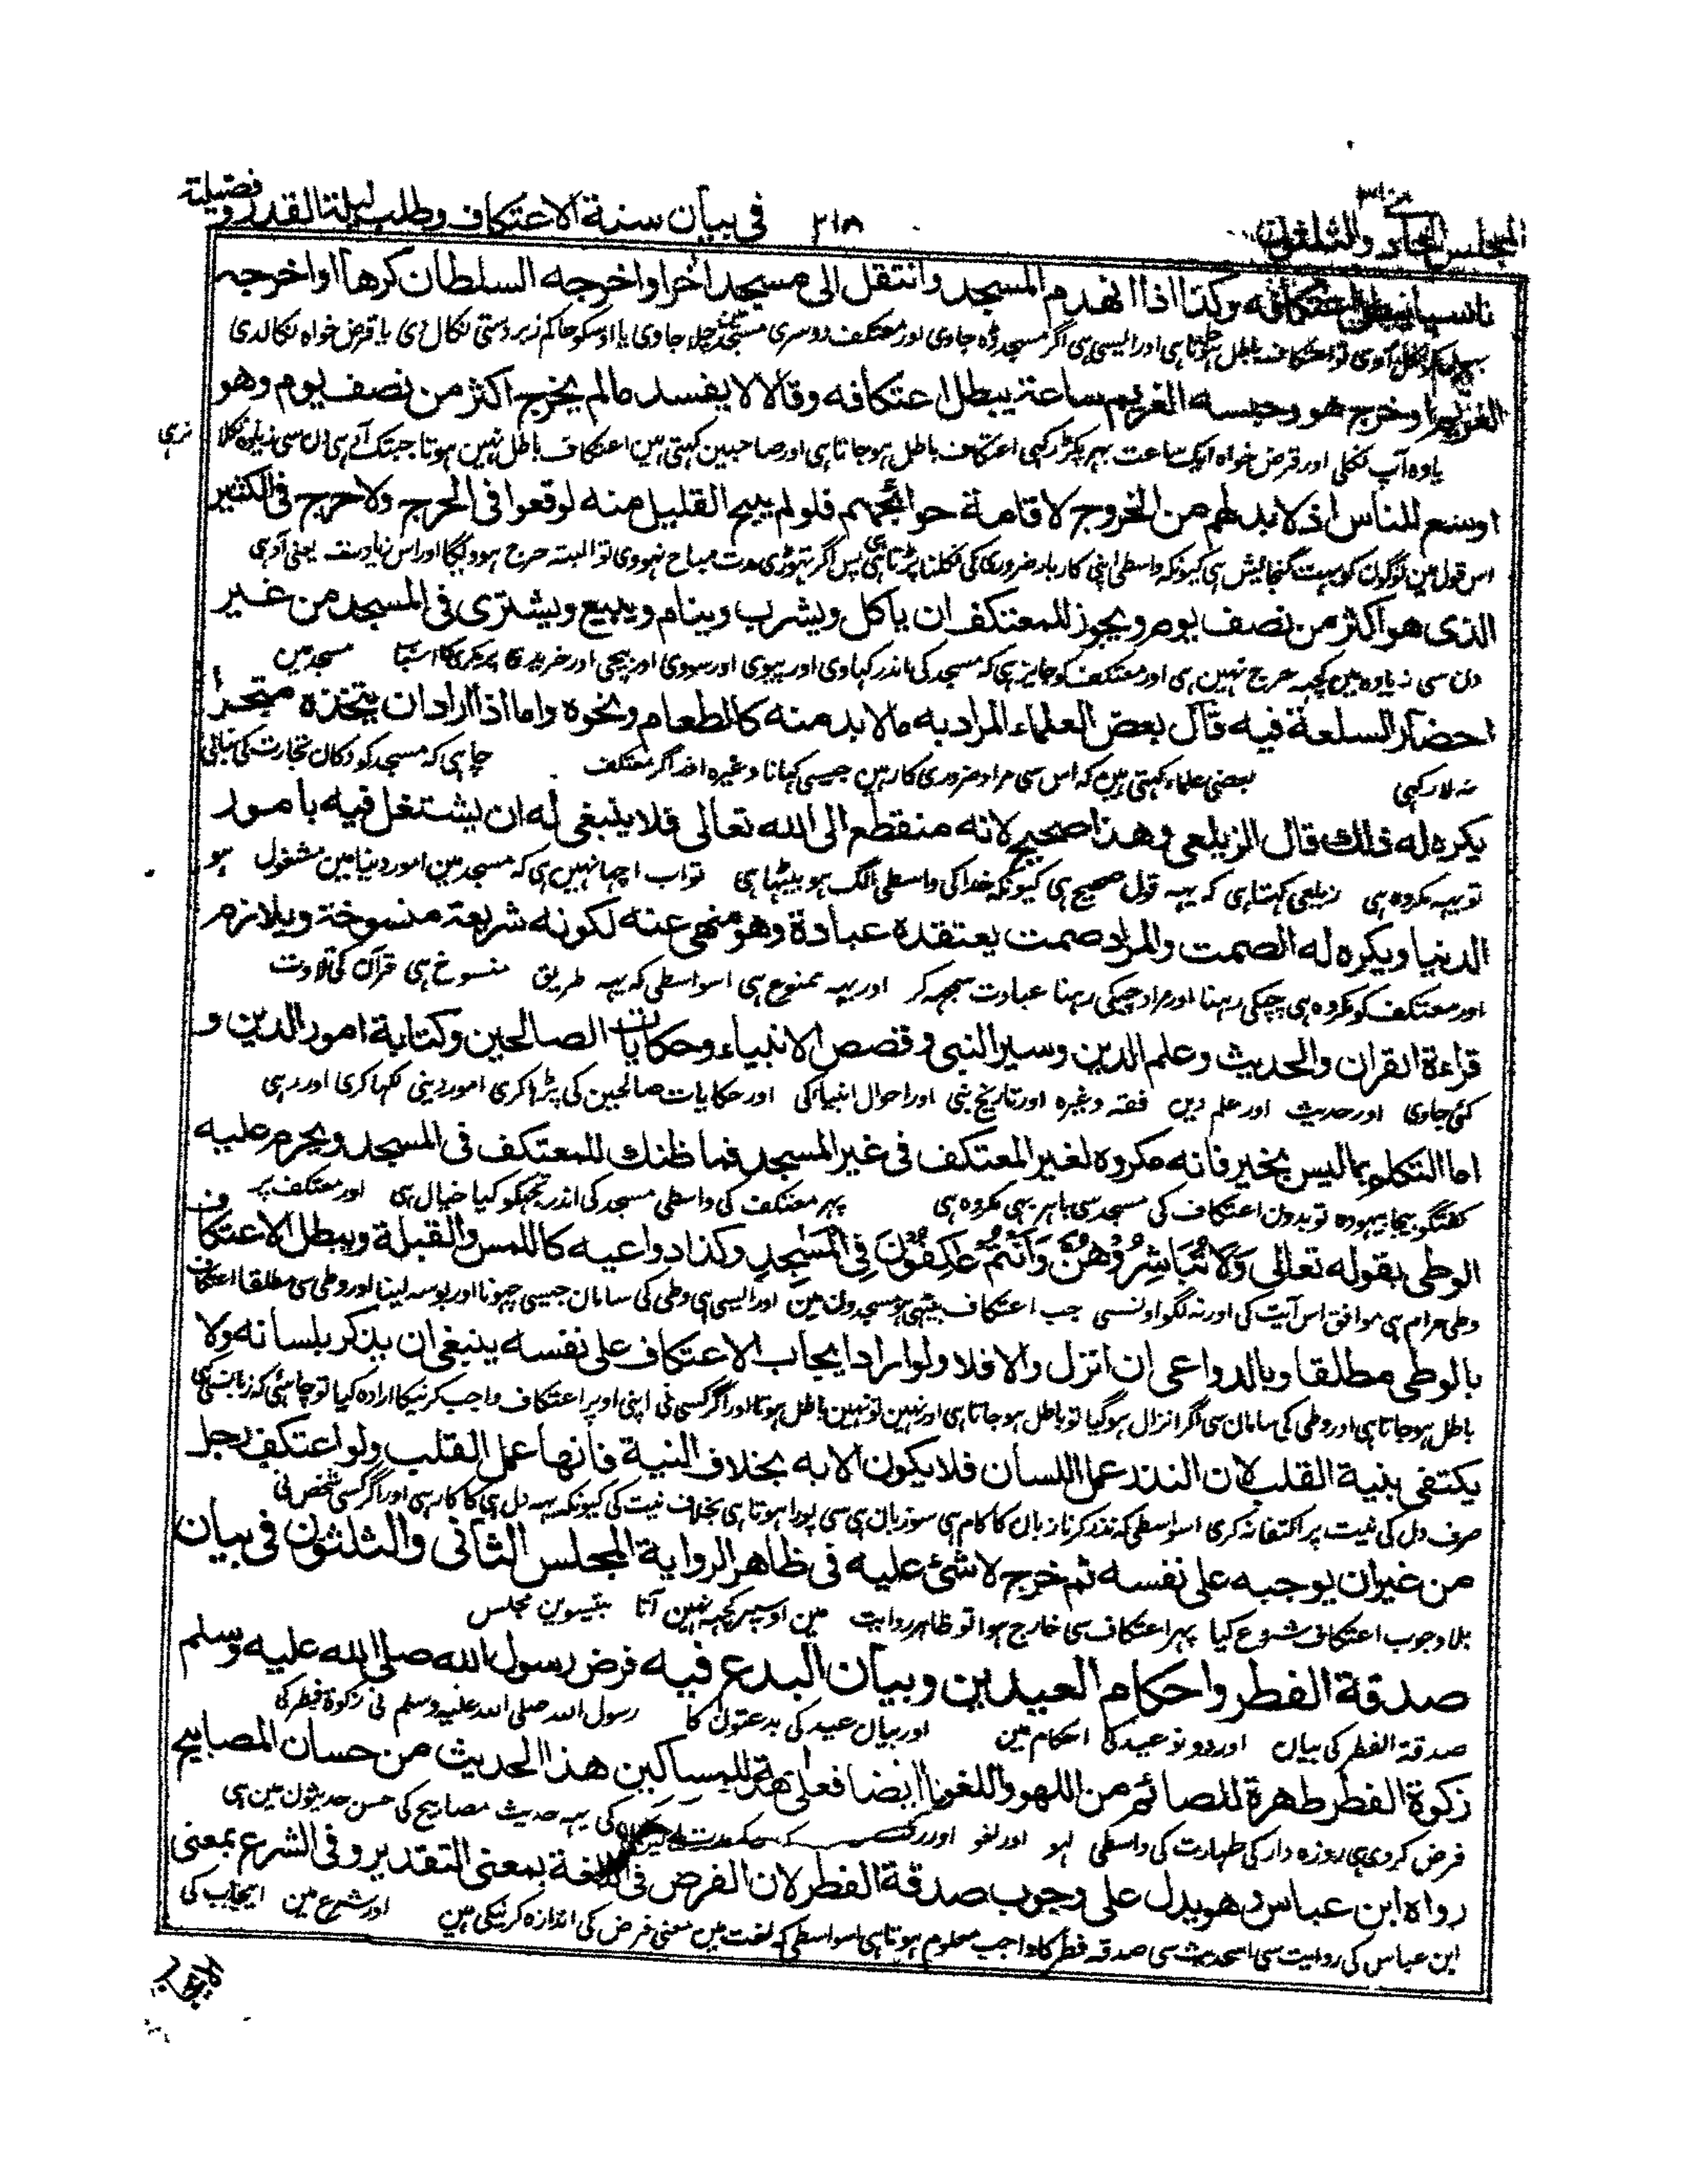 المجلس الحادى والثلثون ٢١٨ فى بيان سنة الاعتكاف وطلب ليلة القدر وفضيلته
ناسيا يبطل اعتكافه وكذا اذا انهدم المسجد وانتقل الى مسجد اخر او اخرجه السلطان كرها او اخرجه
بهول كر نكل آوى تو اعتكاف باطل ہوتا ہى اور ايسى ہى اگر مسجد ڈه جاوى اور معتكف دوسرى مسجد مين چلا جاوى يا اوسكو حاكم زبردستى نكال دى يا قرض خواه نكالدى
الغريم او خرج هو وحبسه الغريم ساعة يبطل اعتكافه وقالا لا يفسد مالم يخرج اكثر من نصف يوم وهو
ياوه آپ نكلى اور قرض خواه ايك ساعت بہر پكڑ ركہى اعتكاف باطل ہو جاتا ہى اور صاحبين كہتى ہين اعتكاف باطل نہين ہوتا جبتك آدہى دن سى زياده نكلا نرہى
اوسع للناس اذ لا بد لهم من الخروج لاقامة حوائجهم فلو لم يبح القليل منه لوقعوا فى الحرج ولا حرج فى الكثير
اس قول مين لوگون كو بہت گنجايش ہى كيونكہ واسطى اپنى كاربار ضرورى كى نكلنا پڑتا ہى پس اگر تہوڑى مدت مباح نہووى تو البتہ حرج ہوويگا اور اس زيادہ مين يعنى آدہى
الذى هو اكثر من نصف يوم ويجوز للمعتكف ان ياكل ويشرب وينام ويبيع ويشترى فى المسجد من غير
دن سى زياده مين كچہہ حرج نہين ہى اور معتكف كو جايز ہى كہ مسجد كى اندر كہاوى اور پيوى اور سووى اور بيچى اور خريدى پر بكرى كا اسباب مسجد مين
احضار السلعة فيه قال بعض العلماء المراد به مالا بد منه كالطعام ونحوه واما اذا اراد ان يتخذه متجرا
نہ لا ركہى بعضى علماء كہتى ہين كہ اس سى مراد ضرورى كار ہين جيسى كہانا وغيره اور اگر معتكف چاہى كہ مسجد كو دكان تجارت كى بنالى
يكره له ذلك قال الزيلعى وهذا صحيح لانه منقطع الى الله تعالى فلا ينبغى له ان يشتغل فيه بامور
تو يہہ مكروه ہى زيلعى كہتا ہى كہ يہہ قول صحيح ہى كيونكہ خدا كى واسطى الگ ہو بيٹہا ہى تو اب اچہا نہين ہى كہ مسجد مين امور دنيا مين مشغول ہو
الدنيا ويكره له الصمت والمراد صمت يعتقده عبادة وهو منهى عنه لكونه شريعة منسوخة ويلازم
اور معتكف كو مكروه ہى چپكى رہنا اور مراد چپكى رہنا عبادت سمجہہ كر اور يہہ ممنوع ہى اسواسطى كہ يہہ طريق منسوخ ہى قرآن كى تلاوت
قراءة القران والحديث وعلم الدين وسير النبى وقصص الانبياء وحكايات الصالحين وكتابة امور الدين و
كئى جاوى اور حديث اور علم دين فقہ وغيره اور تاريخ نبى اور احوال انبياء كى اور حكايات صالحين كى پڑہا كرى امور دينى لكہا كرى اور رہى
اما التكلم بماليس بخير فانه مكروه لغير المعتكف فى غير المسجد فما ظنك للمعتكف فى المسجد ويحرم عليه
گفتگو بيجا بيہوده تو بدون اعتكاف كى مسجد سى باہر بہى مكروه ہى پہر معتكف كى واسطى مسجد كى اندر تجہكو كيا خيال ہى اور معتكف پر
الوطى بقوله تعالى وَلَا تُبَاشِرُوهُنَّ وَاَنْتُمْ عٰكِفُوْنَ فِى الْمَسٰجِدِ وكذا دواعيه كاللمس والقبلة ويبطل الاعتكاف
وطى حرام ہى موافق اس آيت كى اور نہ لگو اونسى جب اعتكاف بيٹہى ہو مسجدون مين اور ايسى ہى وطى كى سامان جيسى چہونا اور بوسہ لينا اور وطى سى مطلقا اعتكاف
بالوطى مطلقا وبالدواعى ان انزل والا فلا ولو اراد ايجاب الاعتكاف على نفسه ينبغى ان يذكر بلسانه ولا
باطل ہو جاتا ہى اور وطى كى سامان سى اگر انزال ہو گيا تو باطل ہو جاتا ہى اور نہين تو نہين باطل ہوتا اور اگر كسى نى اپنى اوپر اعتكاف واجب كرنيكا اراده كيا تو چاہئى كہ زبان سى كہى
يكتفى بنية القلب لان النذر عمل اللسان فلا يكون الا به بخلاف النية فانها عمل القلب ولو اعتكف رجل
صرف دل كى نيت پر اكتفا نہ كرى اسواسطى كہ نذر كرنا زبان كا كام ہى سو زبان ہى سى پورا ہوتا ہى بخلاف نيت كى كيونكہ يہہ دل ہى كا كار ہى اور اگر كسى شخص نى
من غير ان يوجبه على نفسه ثم خرج لا شئ عليه فى ظاهر الرواية المجلس الثانى والثلثون فى بيان
بلا وجوب اعتكاف شروع كيا پہر اعتكاف سى خارج ہوا تو ظاہر روايت مين اوسپر كچہہ نہين آتا بتيسوين مجلس
صدقة الفطر واحكام العيدين وبيان البدع فيه فرض رسول الله صلى الله عليه وسلم
صدقة الفطر كى بيان اور دونو عيد كى احكام مين اور بيان عيد كى بدعتون كا رسول الله صلى الله عليہ وسلم نى زكوة فطر كى
زكوة الفطر طهرة للصائم من اللهو واللغو للمساكين هذا الحديث من حسان المصابيح
فرض كردى ہى روزه دار كى طہارت كى واسطى لہو اور لغو اور كى يہہ حديث مصابيح كى حسن حديثون مين ہى
رواه ابن عباس وهو يدل على وجوب صدقة الفطر لان الفرض فى اللغة بمعنى التقدير وفى الشرع بمعنى
ابن عباس كى روايت سى اس حديث سى صدقہ فطر كا واجب معلوم ہوتا ہى اسواسطى كہ لغت مين معنى فرض كى اندازه كرنيكى ہين اور شرع مين ايجاب كى